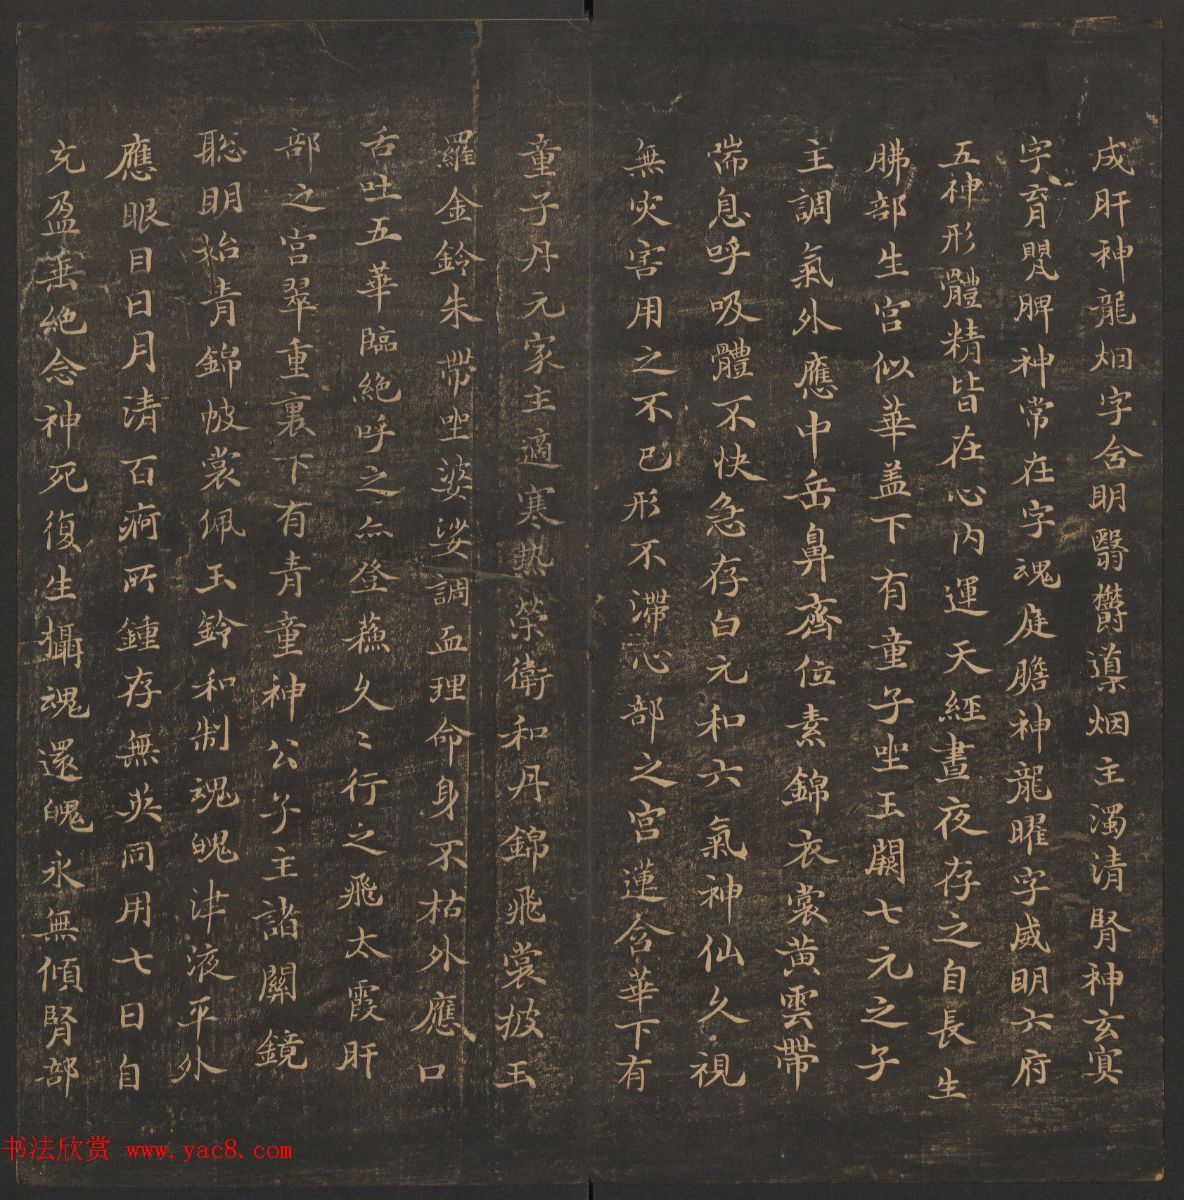 成肝神龍烟字含明翳鬱導烟主濁清腎神玄冥
字育嬰脾神常在字魂庭膽神龍曜字威明六府
五神形體精皆在心内運天經晝夜存之自長生
肺部生宮似華盖下有童子坐玉闕七元之子
主調氣外應中岳鼻齊位素錦衣裳黄雲帶
喘息呼吸體不快急存白元和六氣神仙久視
無灾害用之不已形不滯心部之宮蓮含華下有
童子丹元家主適寒热榮衛和丹錦飛裳披玉
羅金鈴朱帶坐婆娑調血理命身不枯外應口
舌吐五華臨絶呼之亦登蘓久〻行之飛太霞肝
部之宮翠重裏下有青童神公子主諸關鏡
聡明始青錦帔裳佩玉鈴和制魂魄津液平外
應眼目日月清百痾所鍾存無英同用七日自
充盈垂絶念神死復生攝魂還魄永無傾腎部
书法欣赏 www.yac8.com